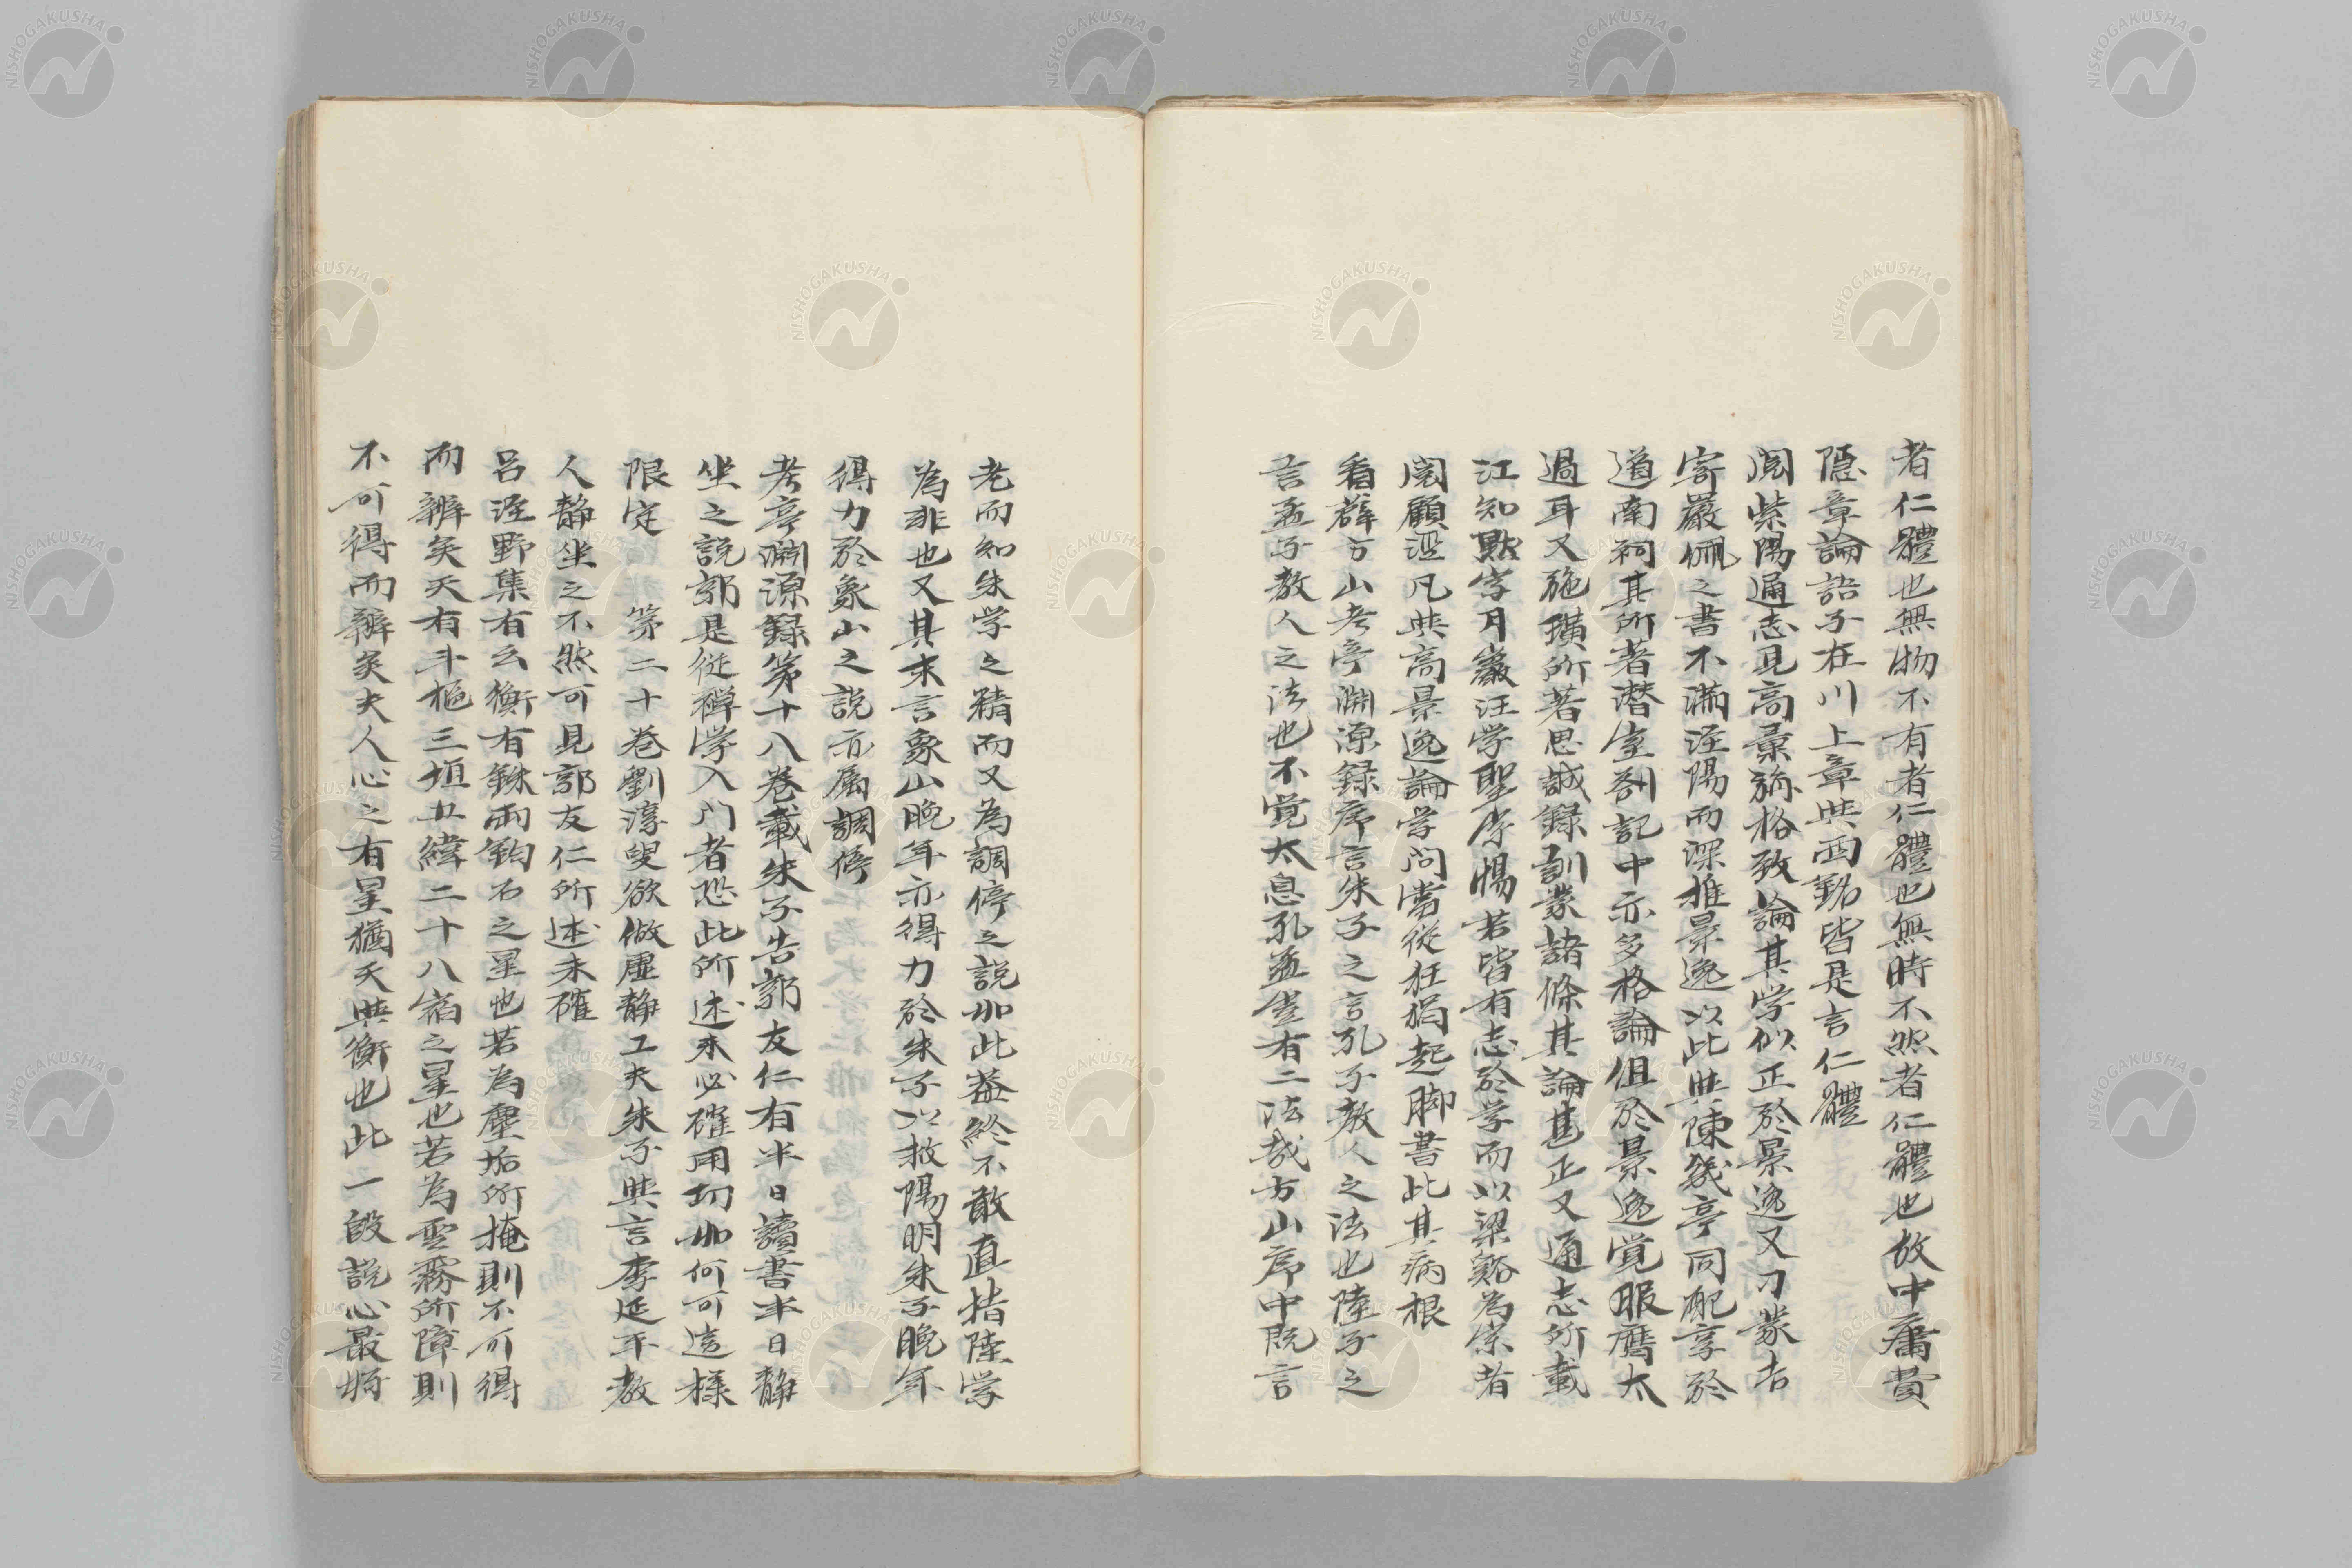 者仁體也無物不有者仁體也無時不然者仁體也故中庸費
隱章論語子在川上章与西銘皆是言仁體
閲紫陽通志見高彙旃格致論其学似正於景逸又刁蒙吉
寄嚴佩之書不滿涇陽而深推景逸以此与陳幾亭同配享於
道南祠其所著潜室剳記中亦多格論但於景逸覚服膺太
過耳又施璜所著思誠録訓蒙諸條其論甚正又通志所載
江知默字月巖汪学聖字惕若皆有志於学而以梁谿為宗者
閲顧涇凡与高景逸論学問當從狂狷起脚書此其病根
看薛方山考亭淵源録序言朱子之言孔子教人之法也陸子之
言孟子教人之法也不覚太息孔孟豈有二法哉方山序中既言
老而知朱学之精而又為調停之説如此葢終不敢直指陸学
為非也又其末言象山晩年亦得力於朱子以救陽明朱子晩年
得力於象山之説亦屬調停
考亭淵源録第十八卷載朱子告郭友仁有半日讀書半日静
坐之説郭是従禪学入門者恐此所述未必確用功如何可這樣
限定　第二十卷劉淳叟欲做虚静工夫朱子与言李延平教
人静坐之不然可見郭友仁所述未確
呂涇野集有云衡有銖兩鈞石之星也若為塵垢所掩則不可得
而辨矣天有斗樞三垣五緯二十八宿之星也若為雲霧所障則
不可得而辨矣夫人心之有星猶天与衡也此一段説心最好